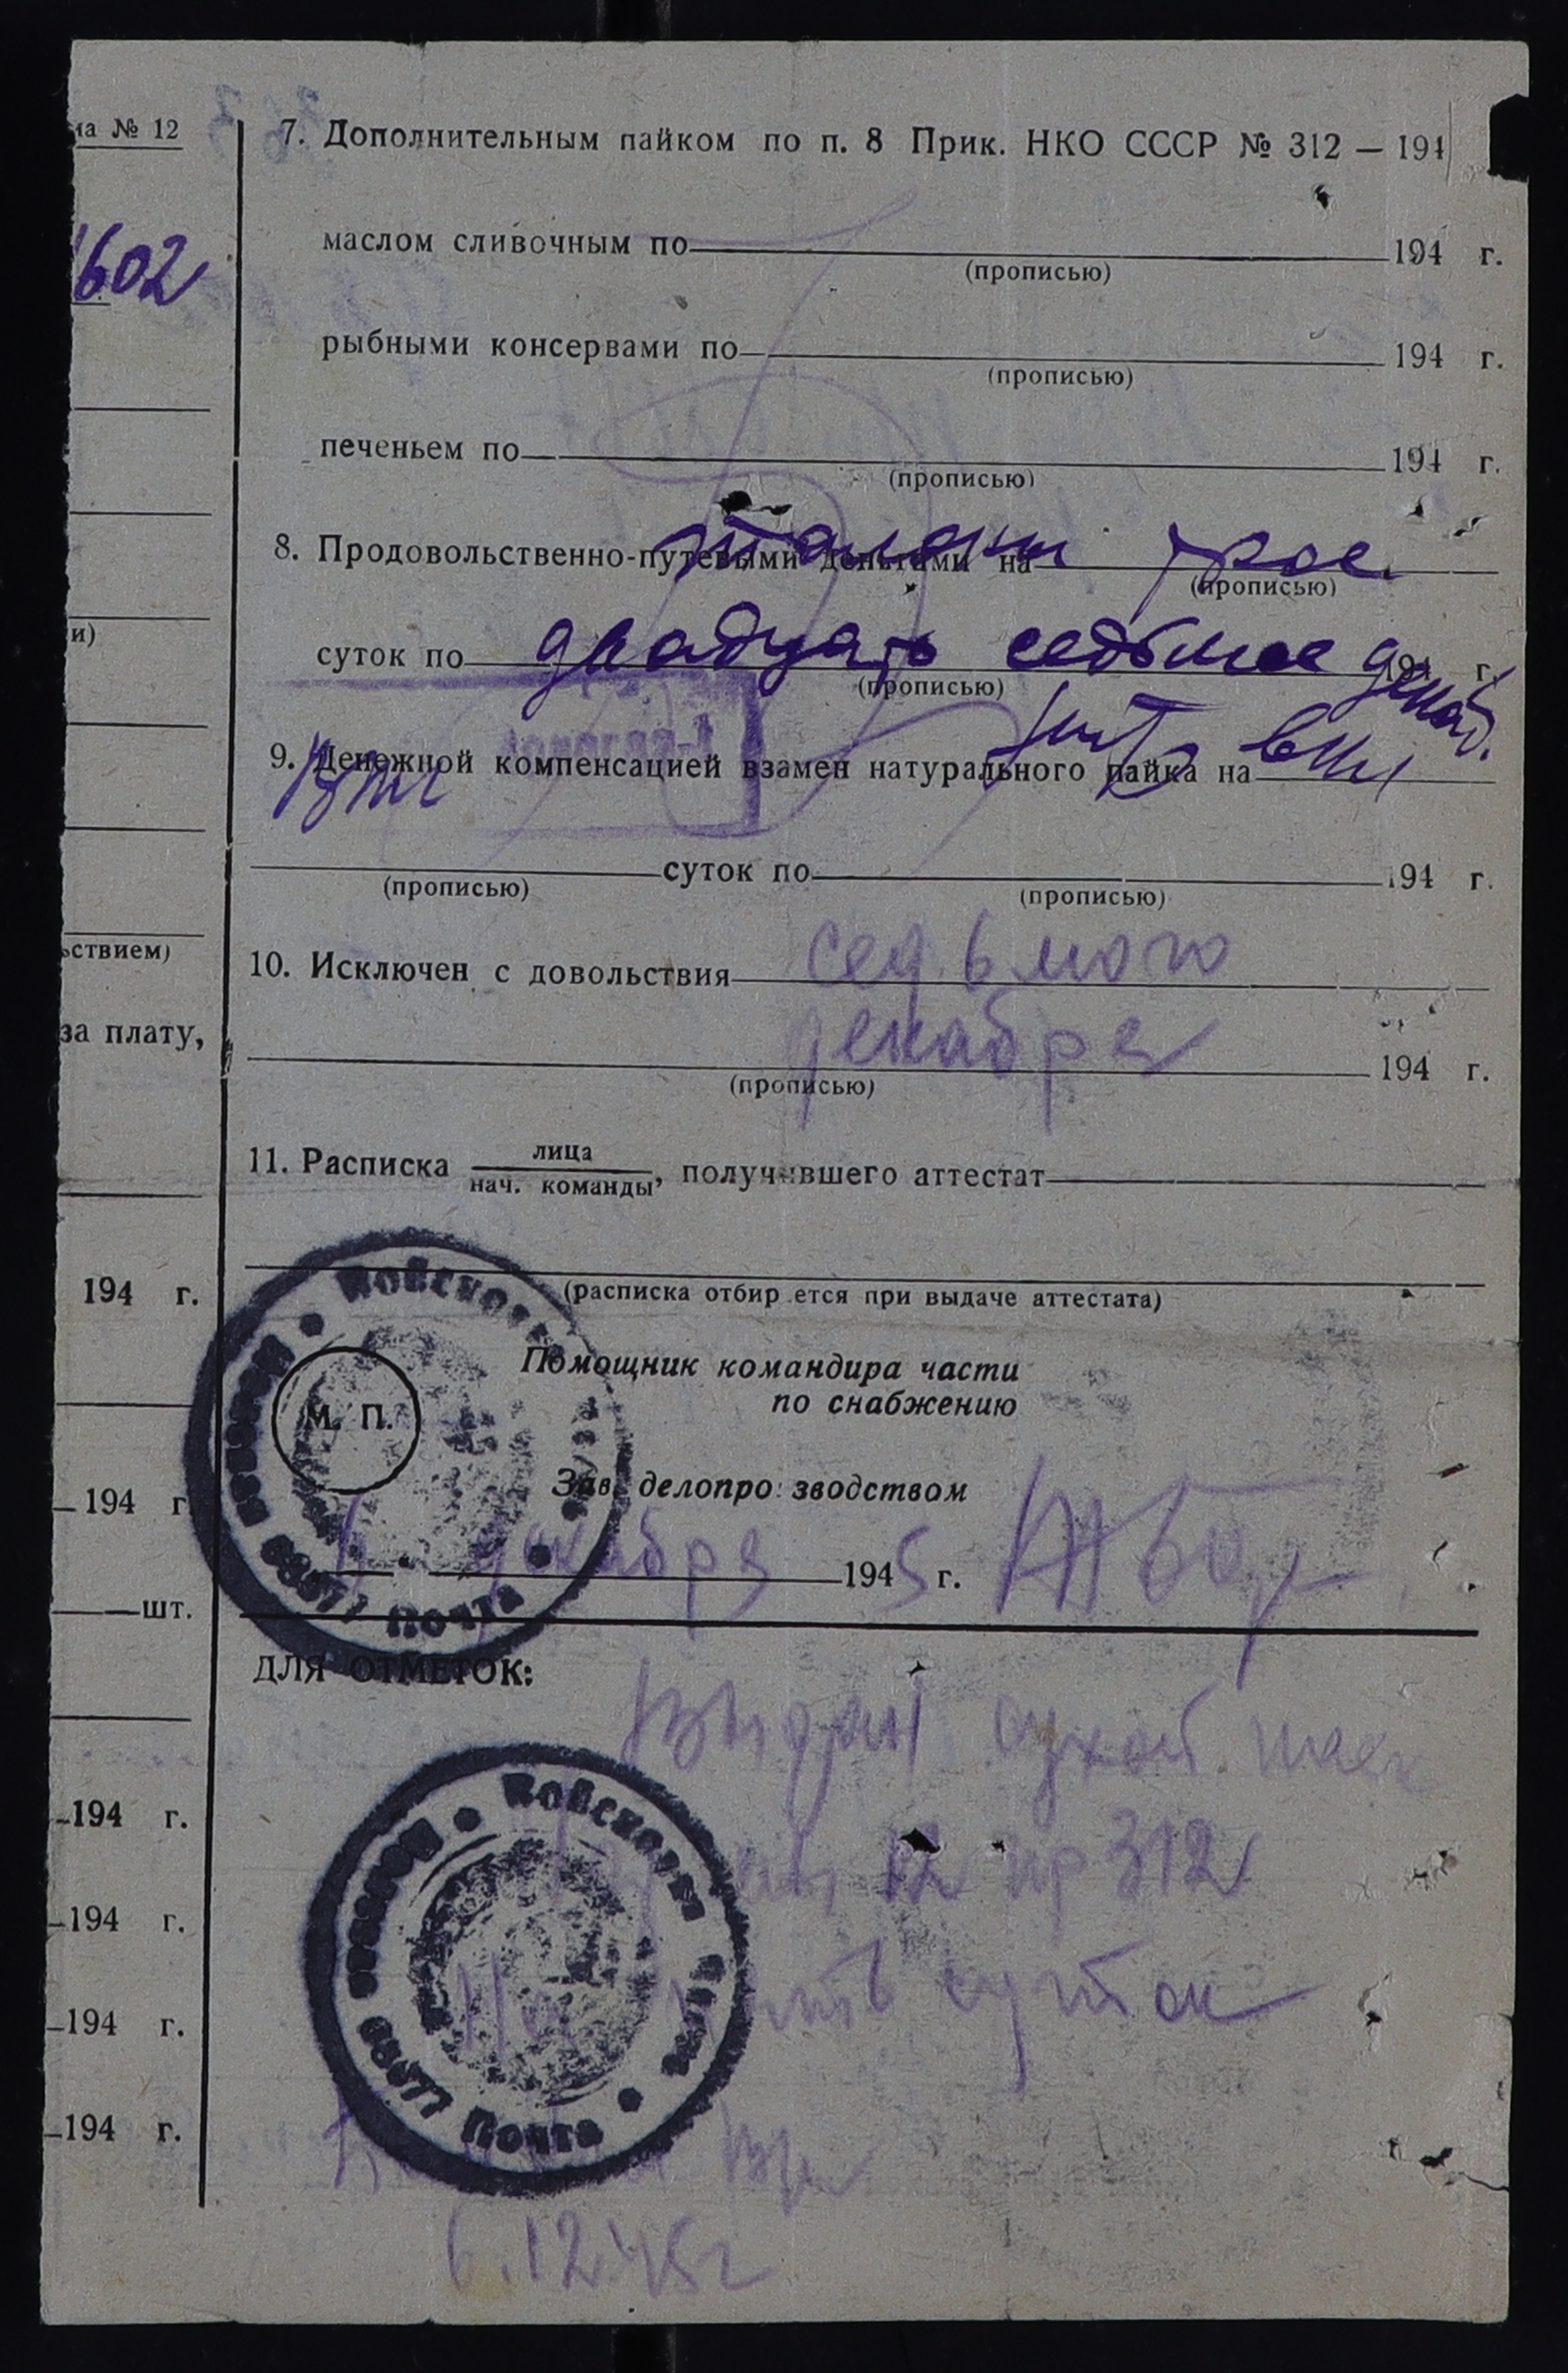 № 12
602
7. Дополнительным пайком по п. 8 Прик. НКО СССР № 312 — 194
маслом сливочным по 194 г.
(прописью)
рыбными консервами по 194 г.
(прописью)
печеньем по 194 г.
(прописью)
талоны трое
8. Продовольственно-путевыми деньгами на
(прописью)
суток по двадцать седьмое декаб. 194 г.
и)
(прописью)
9. Денежной компенсацией взамен натурального пайка на
суток по 194 г.
(прописью) (прописью)
ьствием)
10. Исключен с довольствия седьмого
за плату,
декабря 194 г.
(прописью)
11. Расписка лица
нач. команды, получившего аттестат
194 г.
(расписка отбир ется при выдаче аттестата)
Помощник командира части
по снабжению
М. П.
Зав. делопро зводством
194 г
декабря 1945 г.
шт.
Войсковая
Почта
ДЛЯ ОТМЕТОК:
Выдан сухой паек
12 пр 312
194 г.
194 г.
суток
194 г.
194 г.
Войсковая
Почта
6.12.45г